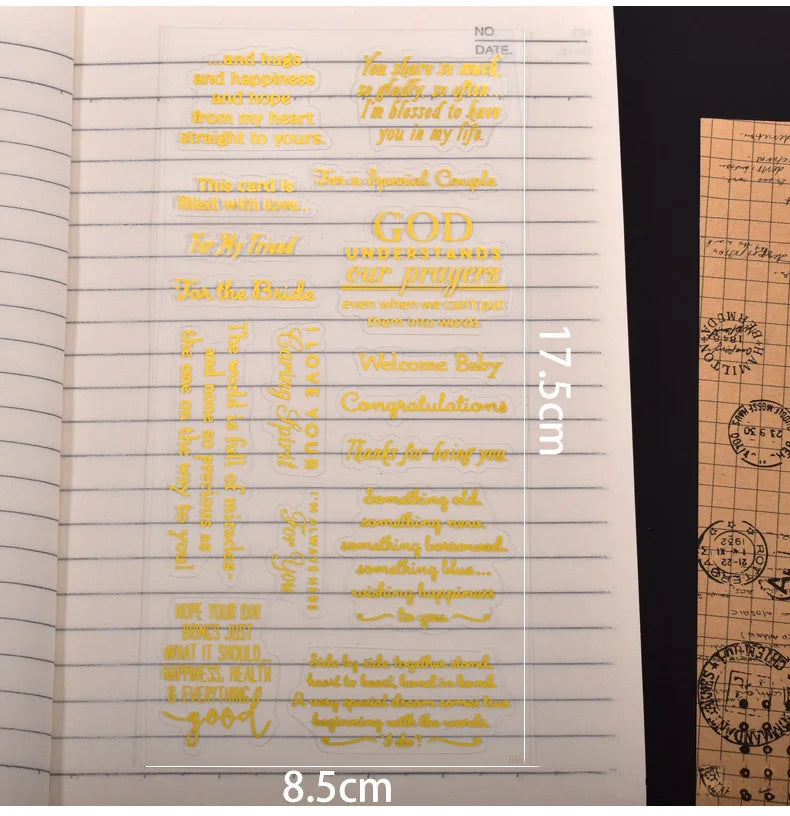 NO.
DATE.
...and hugs
and happiness
and hope
from my heart
straight to yours.
You share so much,
so gladly, so often...
I'm blessed to have
you in my life.
This card is
filled with love...
For a Special Couple
For My Friend
For the Bride
GOD
UNDERSTANDS
our prayers
even when we can't put
them into words
The world is full of miracles-
and none so precious as
the one on the way to you!
I LOVE YOUR
Caring Spirit
Welcome Baby
Congratulations
Thanks for being you
I'M ALWAYS HERE
For You
Something old,
something new,
something borrowed,
something blue...
wishing happiness
to you
HOPE YOUR DAY
BRINGS JUST
WHAT IT SHOULD...
HAPPINESS, HEALTH
& EVERYTHING
good
Side by side together stand,
heart to heart, hand in hand.
A very special dream comes true
beginning with the words,
I do!
17.5cm
8.5cm
HAMILTON
BERMUDA
23.9.30
ROTTERDAM
21-22
1932